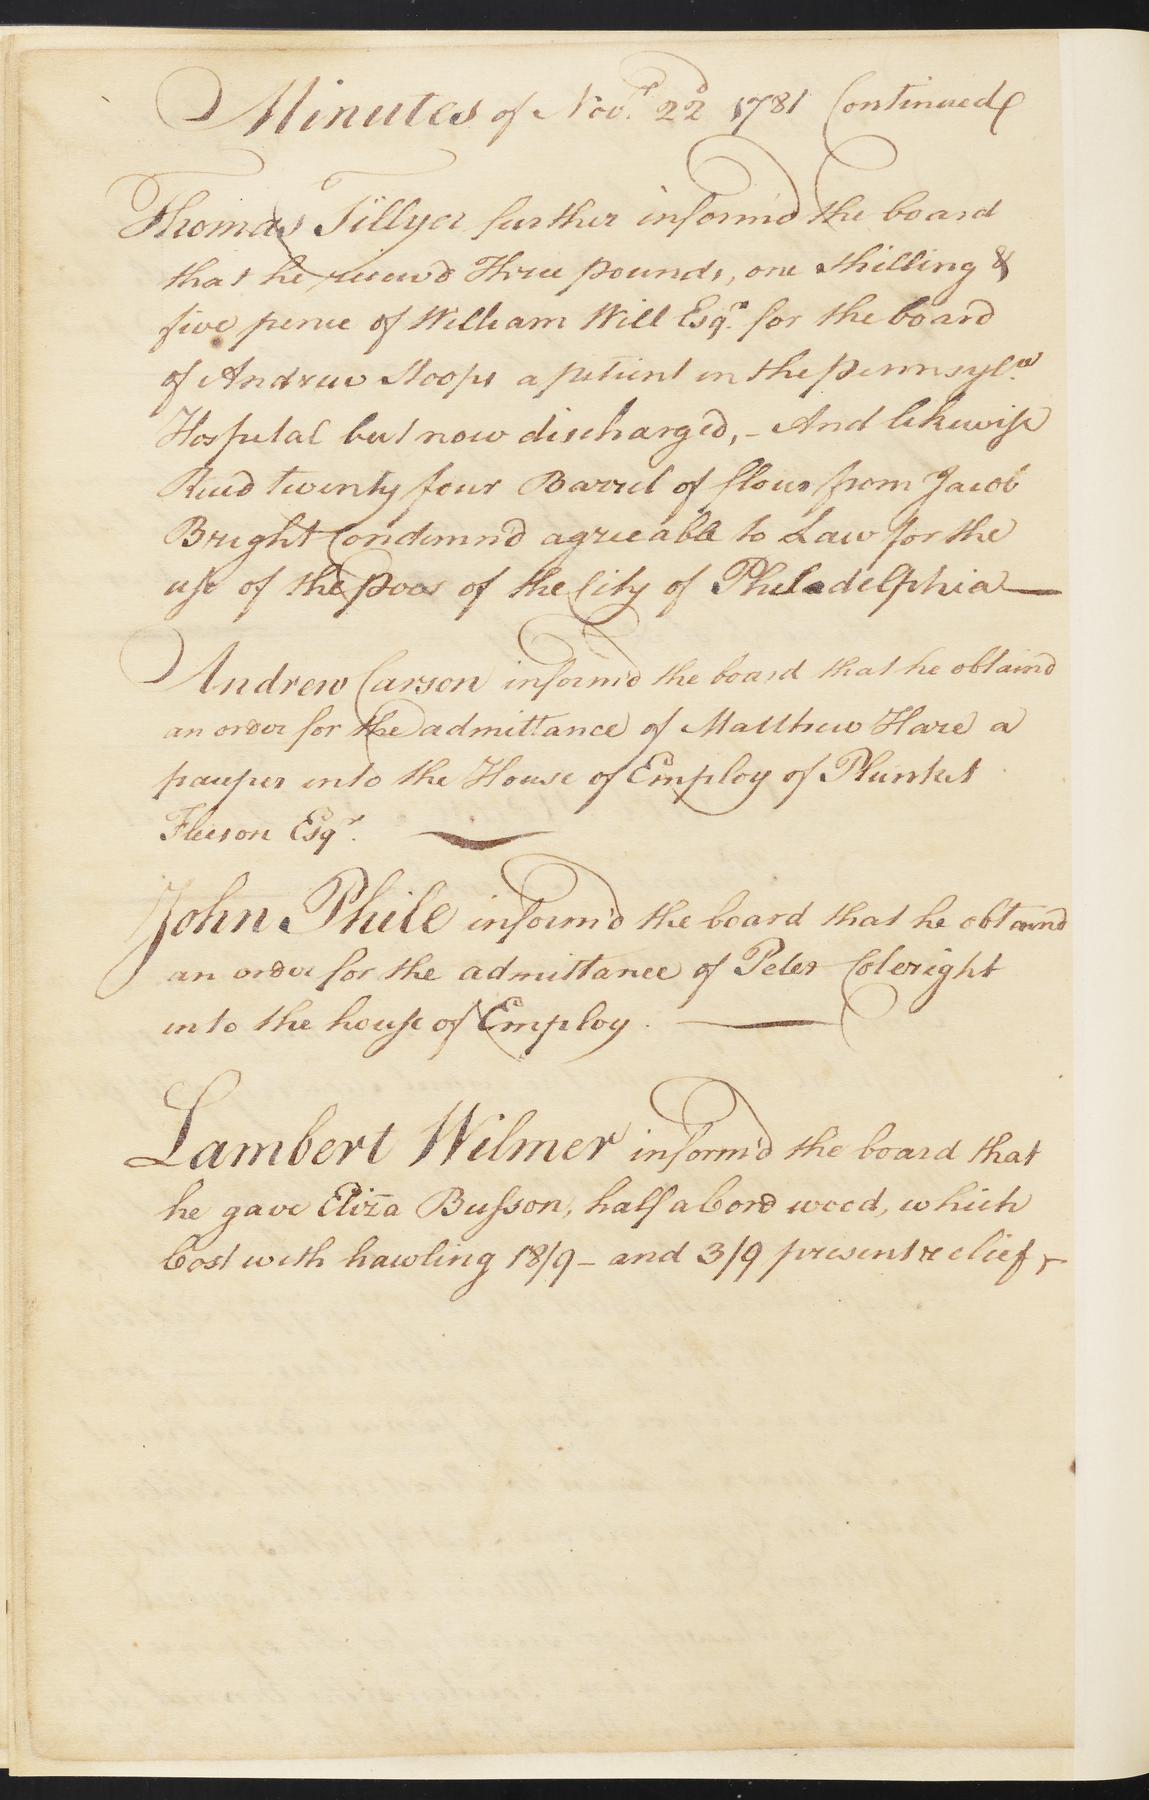 Minutes of Novr. 22d 1781 Continued
Thomas Tillyer further inform'd the board
that he receivd Three pounds, one shilling &
five pence of William Will Esqr. for the board
of Andrew Stoops a patient in the Pennsyla.
Hospital but now discharged,- And likewise
Recd twenty four Barrel of flour from Jacob
Bright Condemn'd agreeable to Law for the
use of the poor of the City of Philadelphia
Andrew Carson inform'd the board that he obtaind
an order for the admittance of Matthew Hare a
pauper into the House of Employ of Plunket
Fleeson Esqr.
John Phile inform'd the board that he obtaind
an order for the admittance of Peter Coleright
into the house of Employ.
Lambert Wilmer inform'd the board that
he gave Eliza Busson, half a Cord wood, which
Cost with hawling 18/9 - and 3/9 present relief